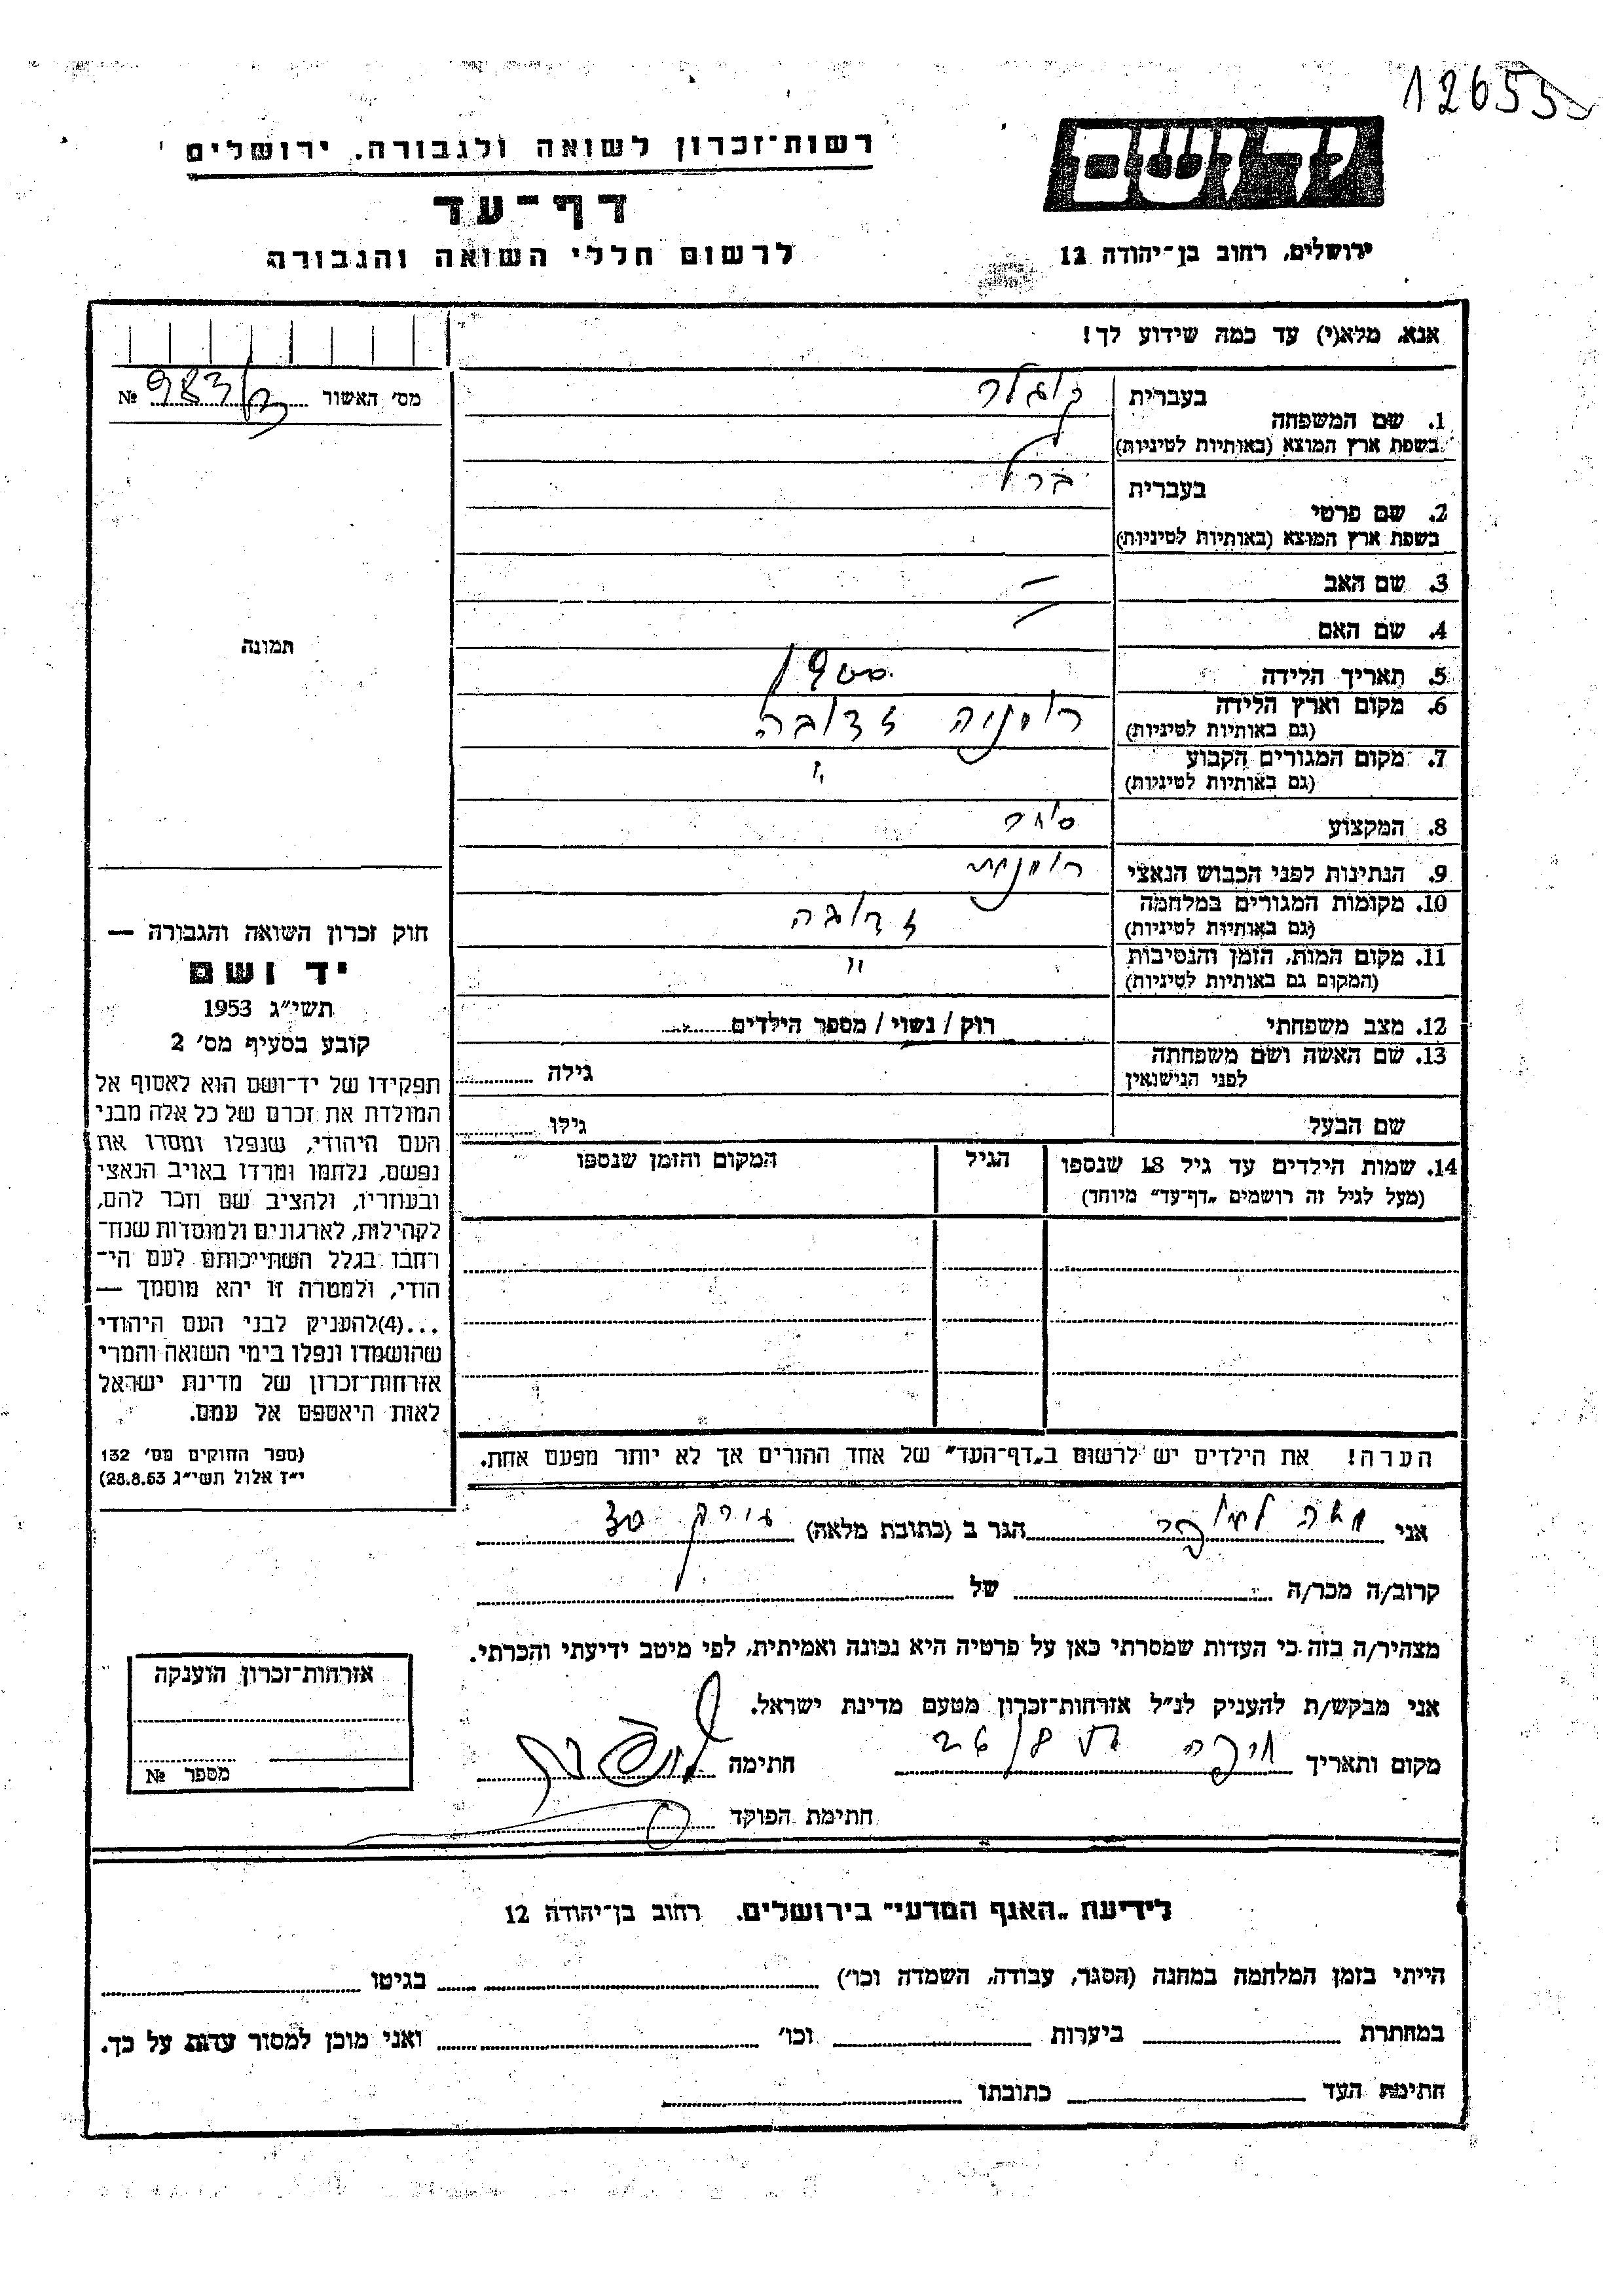 12655
יד ושם
ירושלים, רחוב בן־יהודה 12
רשות־זכרון לשואה ולגבורה, ירושלים
דף־עד
לרשום חללי השואה והגבורה
אנא, מלא(י) עד כמה שידוע לך!
מס' האשור № 983
1. שם המשפחה
בעברית קוגלר
בשפת ארץ המוצא (באותיות לטיניות)
2. שם פרטי
בעברית ברל
בשפת ארץ המוצא (באותיות לטיניות)
3. שם האב —
4. שם האם —
5. תאריך הלידה
6. מקום וארץ הלידה רומניה
(גם באותיות לטיניות)
7. מקום המגורים הקבוע "
(גם באותיות לטיניות)
8. המקצוע סוחר
9. הנתינות לפני הכבוש הנאצי רומנית
10. מקומות המגורים במלחמה
(גם באותיות לטיניות)
11. מקום המות, הזמן והנסיבות "
(המקום גם באותיות לטיניות)
12. מצב משפחתי רוק / נשוי / מספר הילדים
13. שם האשה ושם משפחתה
לפני הנישואין גילה
שם הבעל גילו
14. שמות הילדים עד גיל 18 שנספו הגיל המקום והזמן שנספו
(מעל לגיל זה רושמים „דף־עד" מיוחד)
הערה! את הילדים יש לרשום ב„דף־העד" של אחד ההורים אך לא יותר מפעם אחת.
תמונה
חוק זכרון השואה והגבורה —
יד ושם
תשי"ג 1953
קובע בסעיף מס' 2
תפקידו של יד־ושם הוא לאסוף אל
המולדת את זכרם של כל אלה מבני
העם היהודי, שנפלו ומסרו את
נפשם, נלחמו ומרדו באויב הנאצי
ובעוזריו, ולהציב שם וזכר להם,
לקהילות, לארגונים ולמוסדות שנח־
רבו בגלל השתייכותם לעם הי־
הודי, ולמטרה זו יהא מוסמך —
...(4)להעניק לבני העם היהודי
שהושמדו ונפלו בימי השואה והמרי
אזרחות־זכרון של מדינת ישראל
לאות היאספם אל עמם.
(ספר החוקים מס' 132
י"ז אלול תשי"ג 28.8.53)
אני הגר ב (כתובת מלאה)
קרוב/ה מכר/ה של
מצהיר/ה בזה כי העדות שמסרתי כאן על פרטיה היא נכונה ואמיתית, לפי מיטב ידיעתי והכרתי.
אני מבקש/ת להעניק לנ"ל אזרחות־זכרון מטעם מדינת ישראל.
מקום ותאריך חיפה חתימה
חתימת הפוקד
אזרחות־זכרון הוענקה
מספר №
לידיעת „האגף המדעי" בירושלים, רחוב בן־יהודה 12
הייתי בזמן המלחמה במחנה (הסגר, עבודה, השמדה וכו') בגיטו
במחתרת ביערות וכו' ואני מוכן למסור עדות על כך.
חתימת העד כתובתו